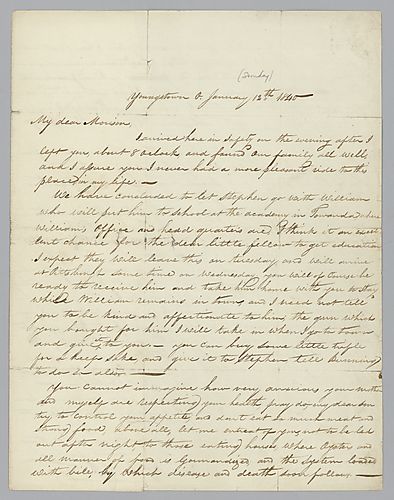 (Sunday)
Youngstown O. January 12th 1845
My dear
I arrived here in safety on the evening after I
left you about 8 oclock and found our family all well
and I assure you I never had a more pleasant ride to this
place in my life. —
We have concluded to let Stephen go with William
who will put him to school at the academy in Towanda where
Williams Office and head quarters are I think it an excel
lent chance for the dear little fellow to get education
I expect they will leave this on tuesday and will arrive
at some time on Wednesday you will of course be
ready to receive him and take him home with you to stay
while William remains in town, and I need not tell
you to be kind and affectionate to him the gun which
you bought for him I will take in when I go to town
and give to you — you can buy some little trifle
for a keeps sake and give it to Stephen tell
to do so also —
You cannot immagine how very anxious your mother
and myself are respecting your health pray do my dear son
try to control your appetite and don't eat so much meat and
strong food above all let me entreat of you not to be led
out after night to those eating houses where Oyster and
all manner of food is Gormandized and the system loaded
with bile, by which disease and death soon follows —